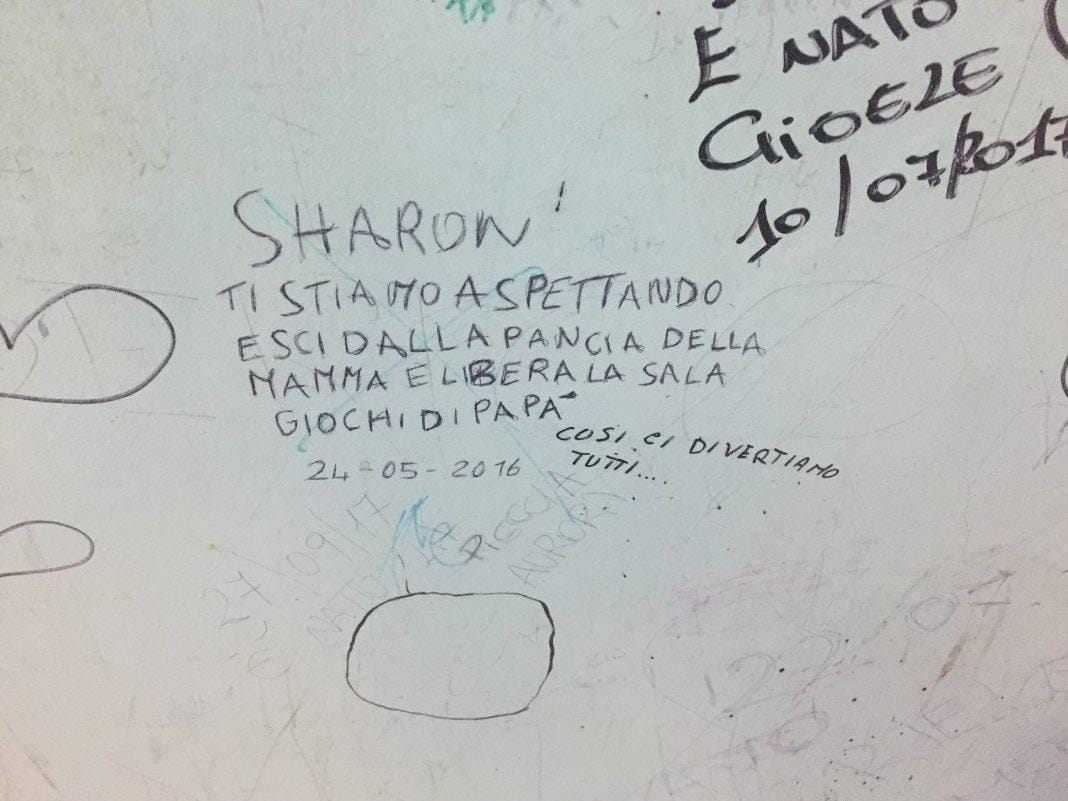 È NATO
GiOELE
10/07/2017
SHARON!
TI STIAMO ASPETTANDO
ESCI DALLA PANCIA DELLA
MAMMA E LIBERA LA SALA
GIOCHI DI PAPA'
COSI CI DIVERTIAMO
TUTTI....
24-05-2016
27/09/17
È NATO
AURORA
07
22